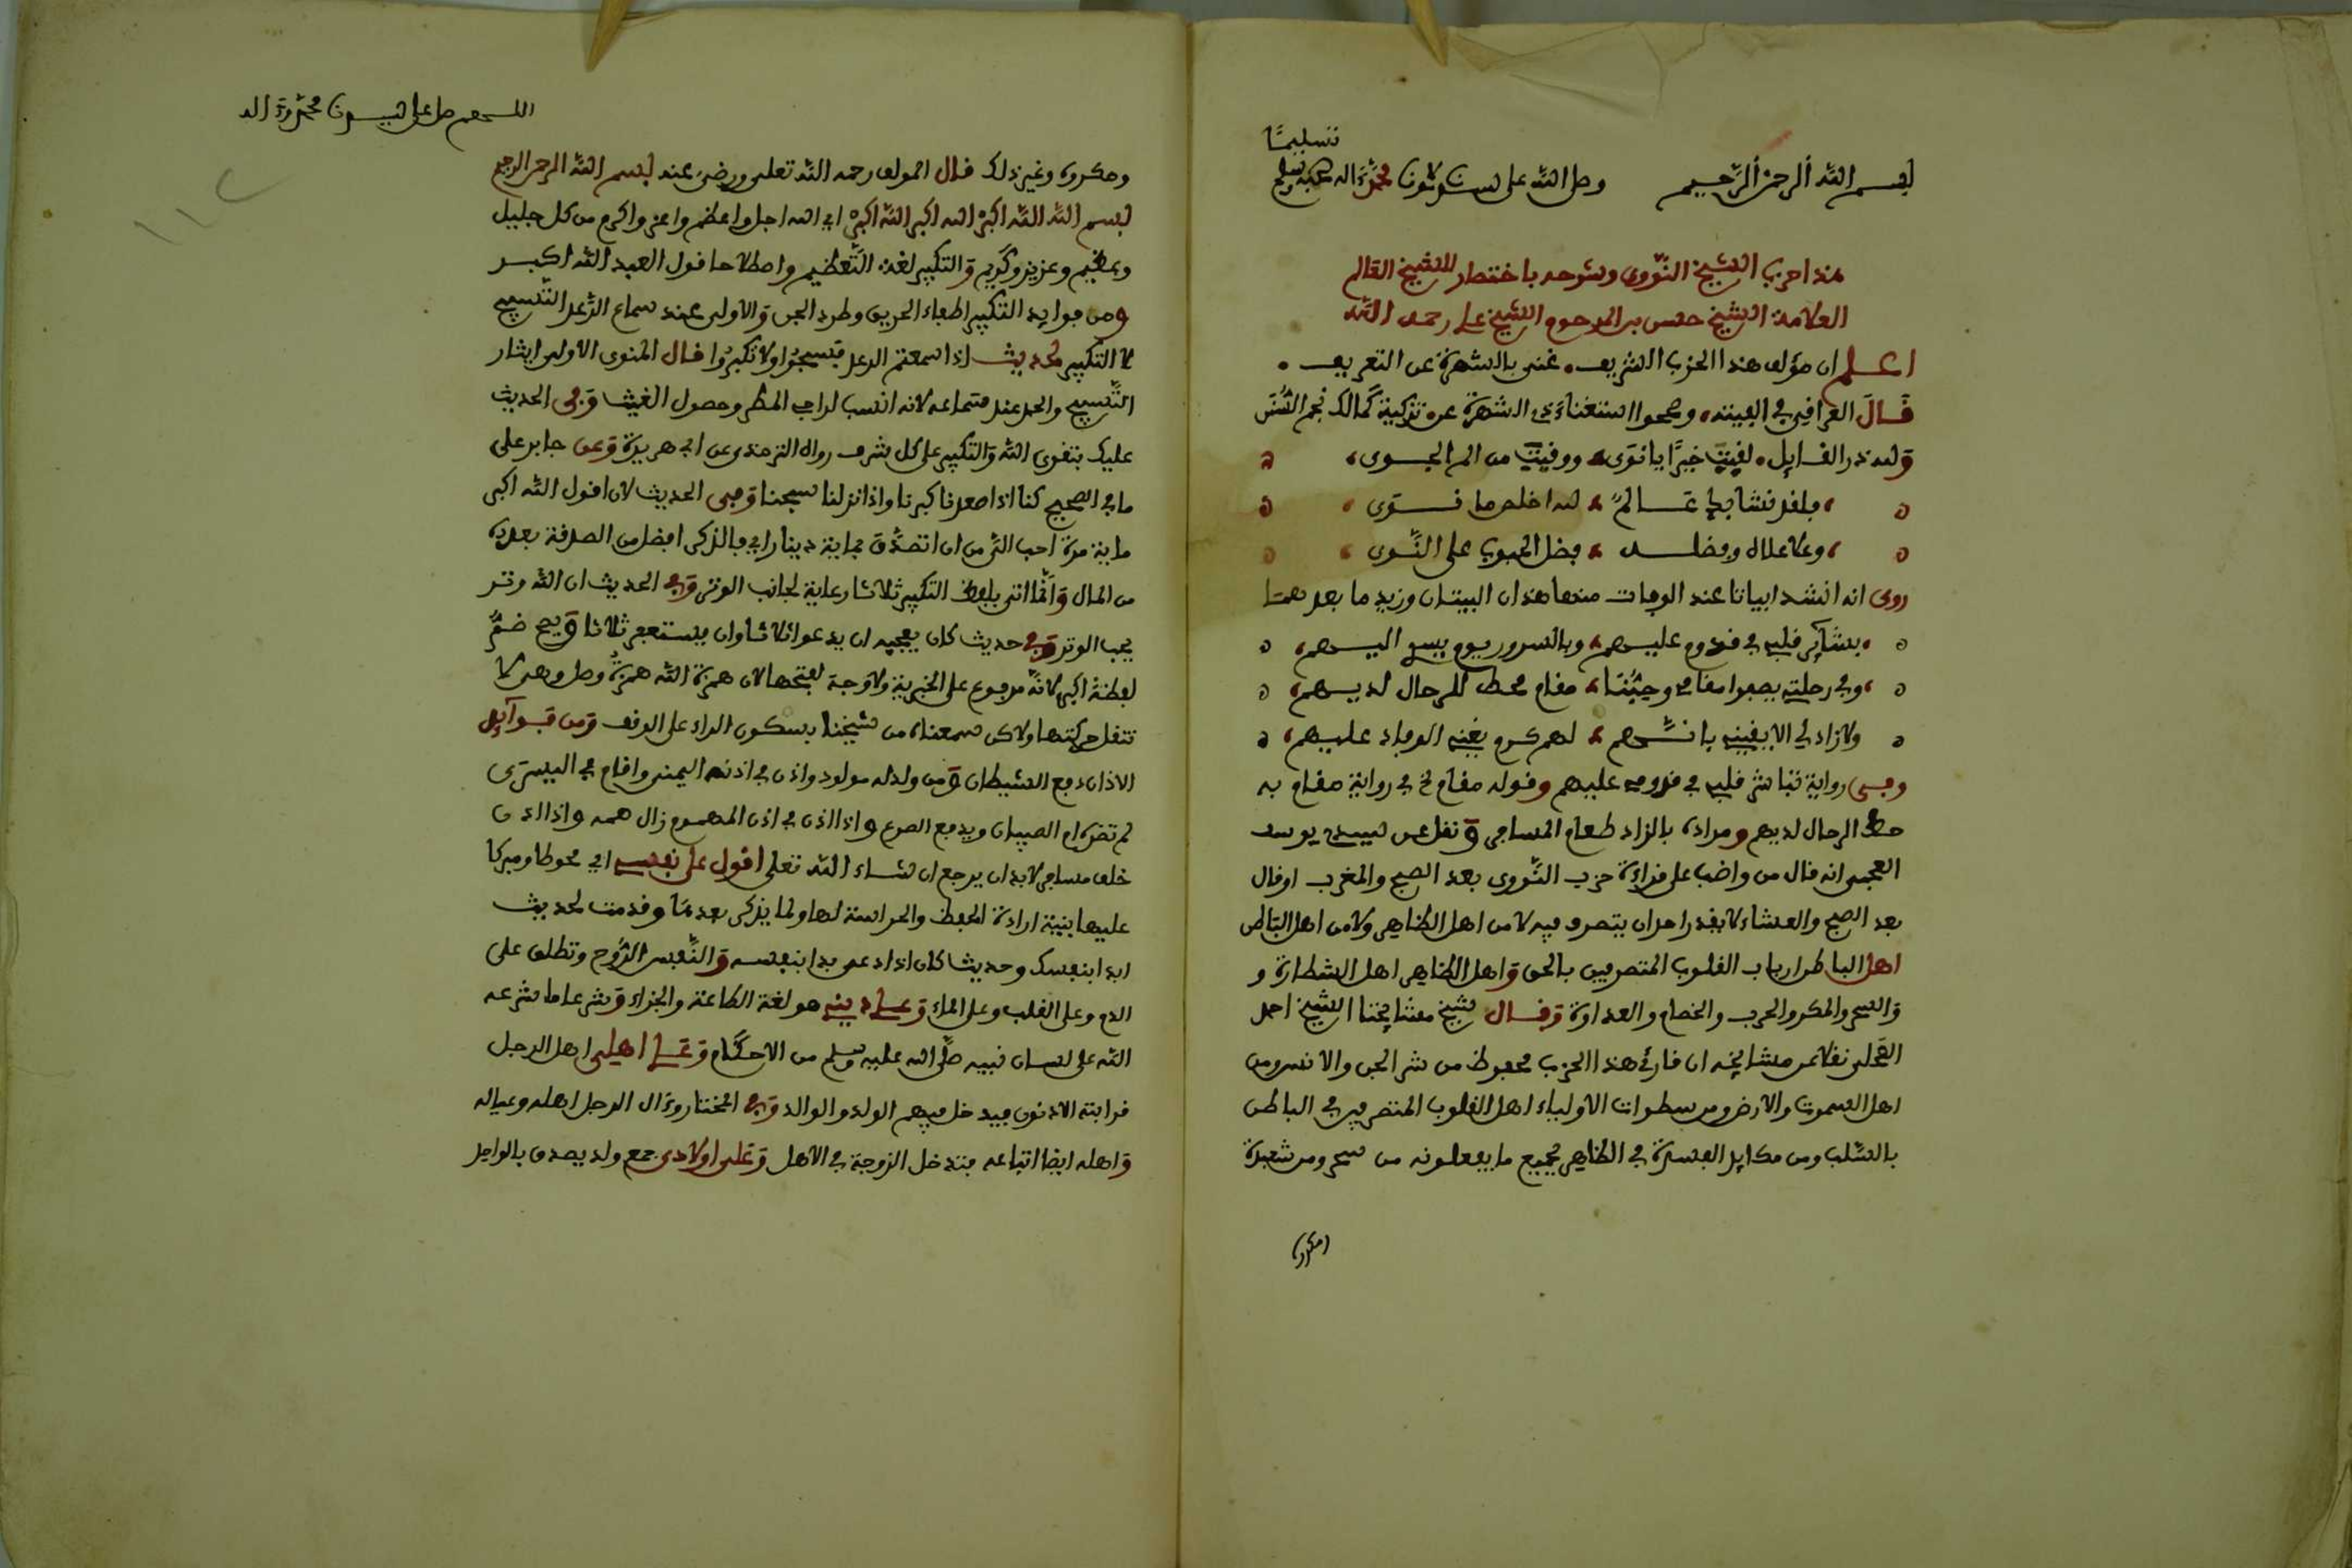 بسم الله الرحمن الرحيم وصلى الله على سيدنا ومولانا محمد وعلى اله وصحبه وسلم
تسليما
هذا حزب الشيخ النووي وشرحه باختصار للشيخ العالم
العلامة الشيخ حسن بن المرحوم الشيخ علي رحمه الله
اعلم ان مؤلف هذا الحزب الشريف غني بالشهرة عن التعريف
قال العراقي في الفيته وصححوا استغناء ذي الشهرة عن تزكية كمالك نجم السنن
ولله در القايل لقيت خيرا يا نوى ووقيت من الم الجوى
فلقد نشا بك عالم لله اخلص ما نوى
وعلا علاه وفضله فضل الحبوب على النوى
روى انه انشد ابياتا عند الوفات منها هذان البيتان وزيد ما بعدهما
بشاير قلبي في قدومي عليهم وبالسرور يوم يسر اليهم
وفي رحلتي يصفوا مقامي وحبذا مقام محط للرحال لديهم
ولا زاد لي الا يقيني بانهم لهم كرم يغني الوفاد عليهم
وفي رواية تباشر قلبي في قدومي عليهم وقوله مقام الخ في رواية مقام به
حط الرحال لديهم ومراده بالزاد طعام المسافر ونقل عن سيدي يوسف
العجمي انه قال من واضب على قراءة حزب النووي بعد الصبح والمغرب او قال
بعد الصبح والعشاء لا يقدر احد ان يتصرف فيه لا من اهل الظاهر ولا من اهل الباطن
اهل الباطن ارباب القلوب المتصرفين بالحق واهل الظاهر اهل الشطارة و
والسحر والمكر والحرب والخصام والعداوة وقال شيخ مشايخنا الشيخ احمد
النخلي نقلا عن مشايخه ان قارئ هذا الحزب محفوظ من شر الجن والانس ومن
اهل السموت والارض ومن سطوات الاولياء اهل القلوب المتصرفين في الباطن
بالسلب ومن مكايد الفسقة في الظاهر بجميع ما يفعلونه من سحر ومن شعبذة
(مكرر)
اللهم صل على سيدنا محمد وءاله
ومكروه وغير ذلك قال المولف رحمه الله تعلى ورضي عنه بسم الله الرحمن الرحيم
بسم الله الله اكبر الله اكبر الله اكبر اي الله اجل واعظم واعز واكرم من كل جليل
وعظيم وعزيز وكريم والتكبير لغة التعظيم واصطلاحا قول العبد الله اكبر
ومن فوايد التكبير اطفاء الحريق وطرد الجن والاولى عند سماع الرعد التسبيح
لا التكبير لحديث اذا سمعتم الرعد فسبحوا ولا تكبروا قال المنوي الاولى ايثار
التسبيح والحمد عند سماعه لانه انسب لراجي المطر وحصول الغيث وفي الحديث
عليك بتقوى الله والتكبير على كل شرف رواه الترمذي عن ابي هريرة وعن جابر على
ما في الصحيح كنا اذا صعدنا كبرنا واذا نزلنا سبحنا وفي الحديث لان اقول الله اكبر
ماية مرة احب الي من ان اتصدق بماية دينار اي فالذكر افضل من الصدقة بعدده
من المال وانما اتى بلفظ التكبير ثلاثا رعاية لجانب الوتر وفي الحديث ان الله وتر
يحب الوتر وفي حديث كان يعجبه ان يدعوا ثلاثا وان يستغفر ثلاثا ويصح ضم
لفظة اكبر لانه مرفوع على الخبرية ولا وجه لفتحها لان همزة الله همزة وصل وهي لا
تنقل حركتها ولاكن سمعناه من شيخنا بسكون الراء على الوقف ومن فوايد
الاذان دفع الشيطان ومن ولد له مولود واذن في اذنه اليمنى واقام في اليسرى
لم تضره ام الصبيان ويدفع الصرع واذا اذن في اذن المهموم زال همه واذا اذن
خلف مسافر لابد ان يرجع ان شاء الله تعلى اقول على نفسي اي محوطا ومبركا
عليها بنية ارادة الحفظ والحراسة لها ولما يذكر بعدها وقدمت لحديث
ابدا بنفسك وحديث كان اذا دعى بدا بنفسه والنفس الروح وتطلق على
الدم وعلى القلب وعلى الماء وعلى ديني هو لغة الطاعة والجزاء وشرعا ما شرعه
الله على لسان نبيه صلى الله عليه وسلم من الاحكام وعلى اهلي اهل الرجل
قرابته الادنون فيدخل فيهم الولد والوالد وفي المختار وءال الرجل اهله وعياله
واهله ايضا اتباعه فتدخل الزوجة في الاهل وعلى اولادي جمع ولد يصدق بالواحد